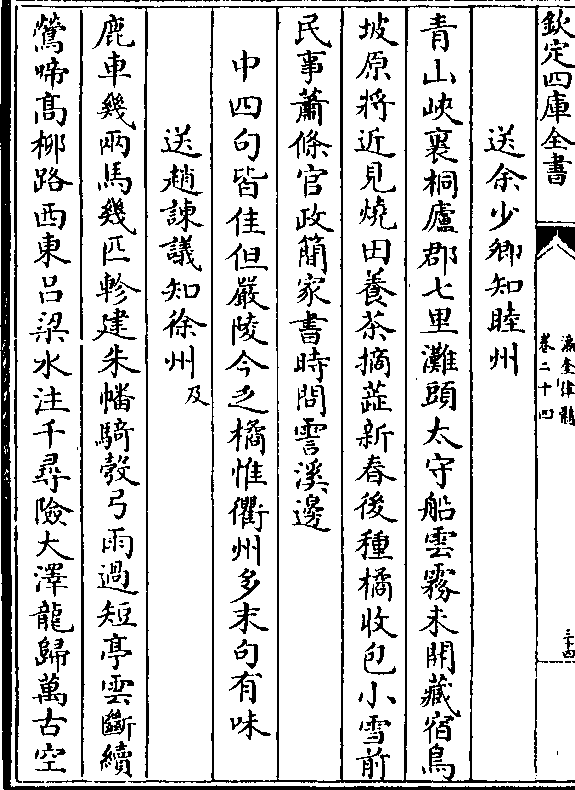 欽定四庫全書
瀛奎律髓
卷二十四
三十四
送余少卿知睦州
青山峽裏桐廬郡七里灘頭太守船雲霧未開藏宿鳥
坡原將近見燒田養茶摘蕋新春後種橘收包小雪前
民事蕭條官政簡家書時問霅溪邊
中四句皆佳但嚴陵今乏橘惟衢州多末句有味
送趙諫議知徐州 及
鹿車幾兩馬幾匹軫建朱幡騎彀弓雨過短亭雲斷續
鶯啼髙柳路西東吕梁水注千尋險大澤龍歸萬古空